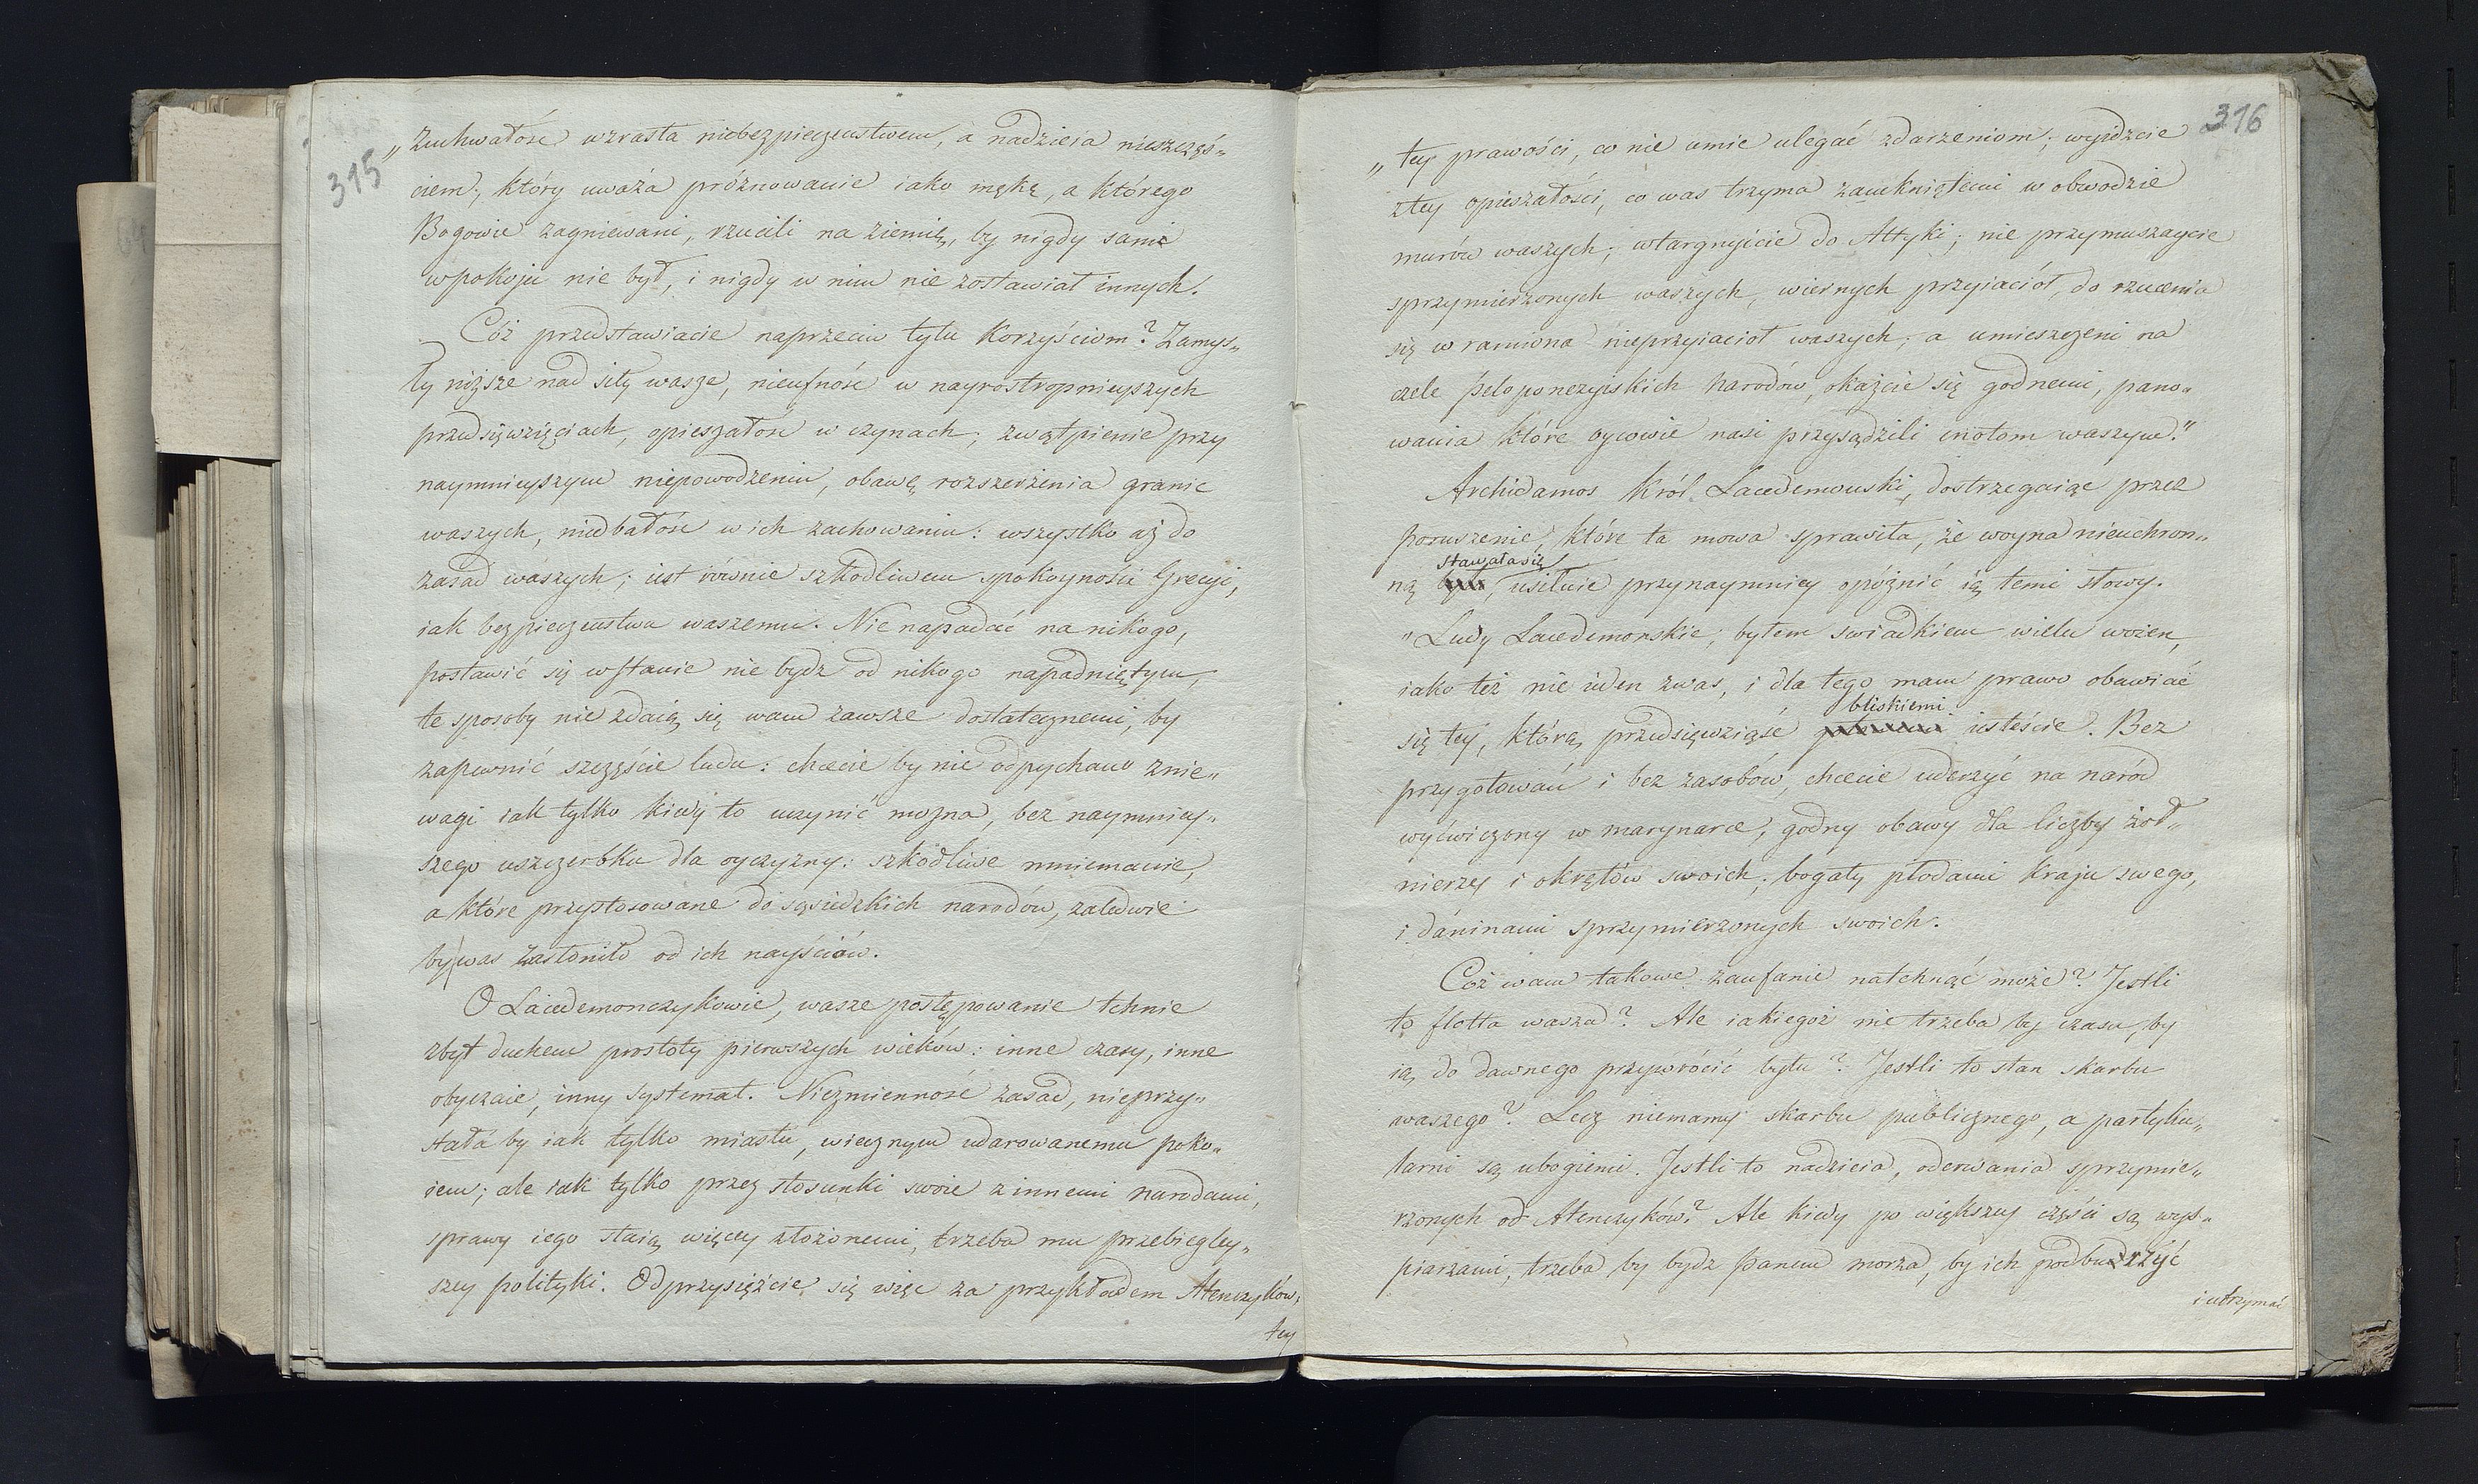 315
„ Zuchwałość wzrasta niebezpieczeństwem, a nadzieia nieszczęś„
ciem; który uważa próżnowanie iako mękę, a którego
Bogowie zagniewani, rzucili na ziemię, by nigdy sami
wpokoju nie był, i nigdy w nim nie zostawiał innych.
Cóż przedstawiacie naprzeciw tylu Korzyściom? Zamys„
ły niższe nad siły wasze, nieufność w nayrostropnieyszych
przedsięwzięciach, opieszałość w czynach; zwątpienie przy
naymnieyszym niepowodzeniu, obawę rozszerzenia granic
waszych, niedbałość w ich zachowaniu: wszystko aż do
zasad waszych; iest równie szkodliwem spokoyności Grecyi,
iak bezpieczeństwu waszemu. Nie napadać na nikogo,
postawić się wstanie nie bydz od nikogo napadniętym,
te sposoby nie zdaią się wam zawsze dostatecznemi, by
zapewnić szczęście ludu: chcecie by nie odpychano znie„
wagi iak tylko kiedy to uczynić można, bez naymniey„
szego uszczerbku dla oyczyzny: szkodliwe mniemanie,
a które przystosowane do sąsiedzkich narodów, zaledwie
by was zasłoniło od ich nayściów.
O Lacedemonczykowie, wasze postępowanie tchnie
zbyt duchem prostoty pierwszych wieków: inne czasy, inne
obyczaie, inny systemat. Niezmienność zasad, nieprzy„
stała by iak tylko miastu, wiecznym udarowanemu poko„
iem; ale iak tylko przez stosunki swoie z innemi narodami,
sprawy iego staią więcey złożonemi, trzeba mu przebiegley„
szey polityki. Odprzysiężcie się więc za przykładem Atenczyków,
tey
316
„ tey prawości, co nie umie ulegać zdarzeniom; wyjdzcie
ztey opieszałości, co was trzyma zamkniętemi w obwodzie
murów waszych; wtargnyicie do Attyki; nie przymuszaycie
sprzymierzonych waszych, wiernych przyiaciół, do rzucenia
się w ramiona nieprzyiaciół waszych; a umieszczeni na
czele peloponezyiskich narodów, okażcie się godnemi, pano„
wania które oycowie nasi przysądzili cnotom waszym."
Archidamos Król Lacedemonski, dostrzegaiąc przez
poruszenie, które ta mowa sprawiła, że woyna nieuchron„
stawała się
ną była, usiłuie przynaymniey opóźnić ią temi słowy.
"Ludy Lacedemonskie; byłem swiadkiem wielu woien,
iako też nie ieden zwas, i dla tego mam prawo obawiać
bliskiemi
się tey, którą przedsięwziąść iesteście. Bez
przygotowań i bez zasobów, chcecie uderzyć na naród
wyćwiczony w marynarce, godny obawy dla liczby żoł„
nierzy i okrętów swoich; bogaty płodami Kraju swego,
i daninami sprzymierzonych swoich.
Cóż wam takowe zaufanie natchnąć może? Jestli
to flotta wasza? Ale iakiegoż nie trzeba by czasu, by
ią do dawnego przywrócić bytu? Jestli to stan skarbu
waszego? Lecz niemamy skarbu publicznego, a partyku„
larni są ubogiemi. Jestli to nadzieia, oderwania sprzymie„
rzonych od Atenczyków? Ale kiedy po większey części są wys„
piarzami, trzeba by bydz panem morza, by ich podburzyć
i utrzymać